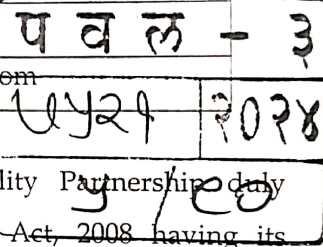 पवल - ३
om
७५२१ २०२४
lity Partnership duly
५ /
Act, 2008 having its